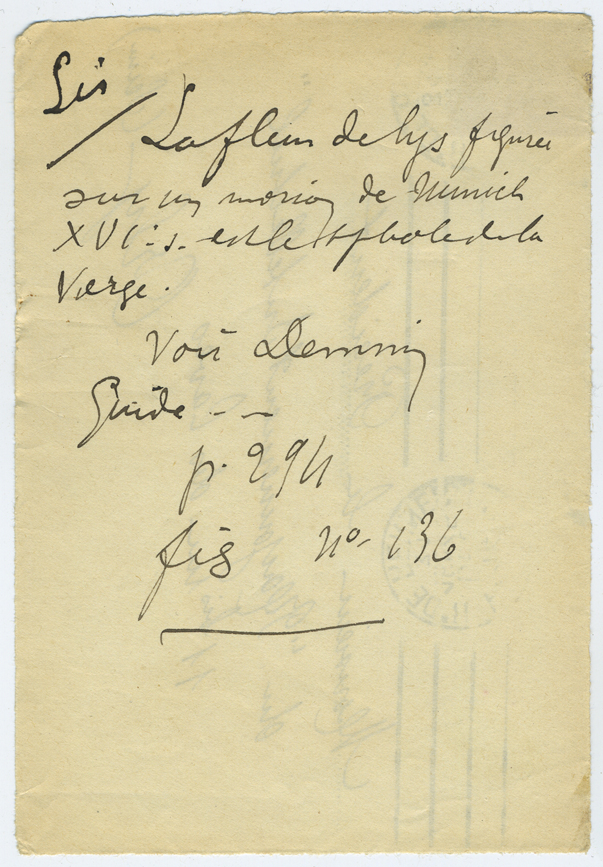 Lis
La fleur de lys figurée
sur un morion de Munich
XVIe s. est le symbole de la
Vierge.
Voir Demmin
Guide - -
p. 294
fig no 136